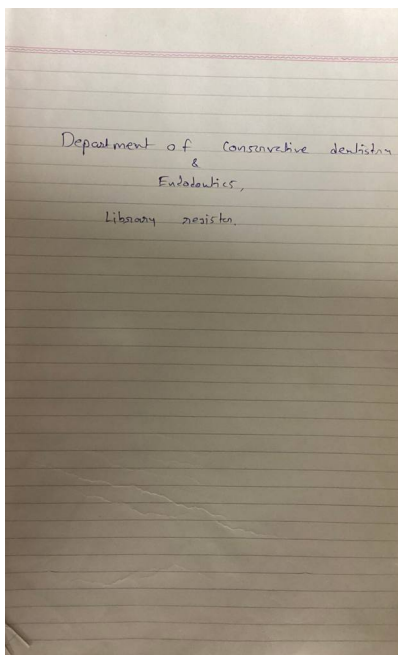 Department of Conservative dentistry
&
Endodontics,
Library register.